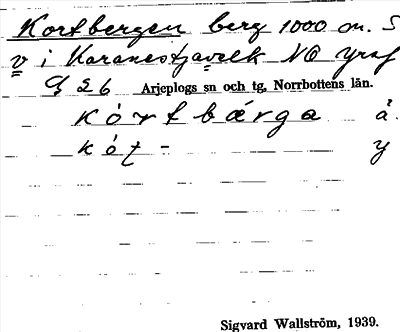 Kortbergen berg 1000 m. S
v i Karanestjavelk NO Yraf
G 26 Arjeplogs sn och tg, Norrbottens län.
kórtbárga å.
kót- y
Sigvard Wallström, 1939.